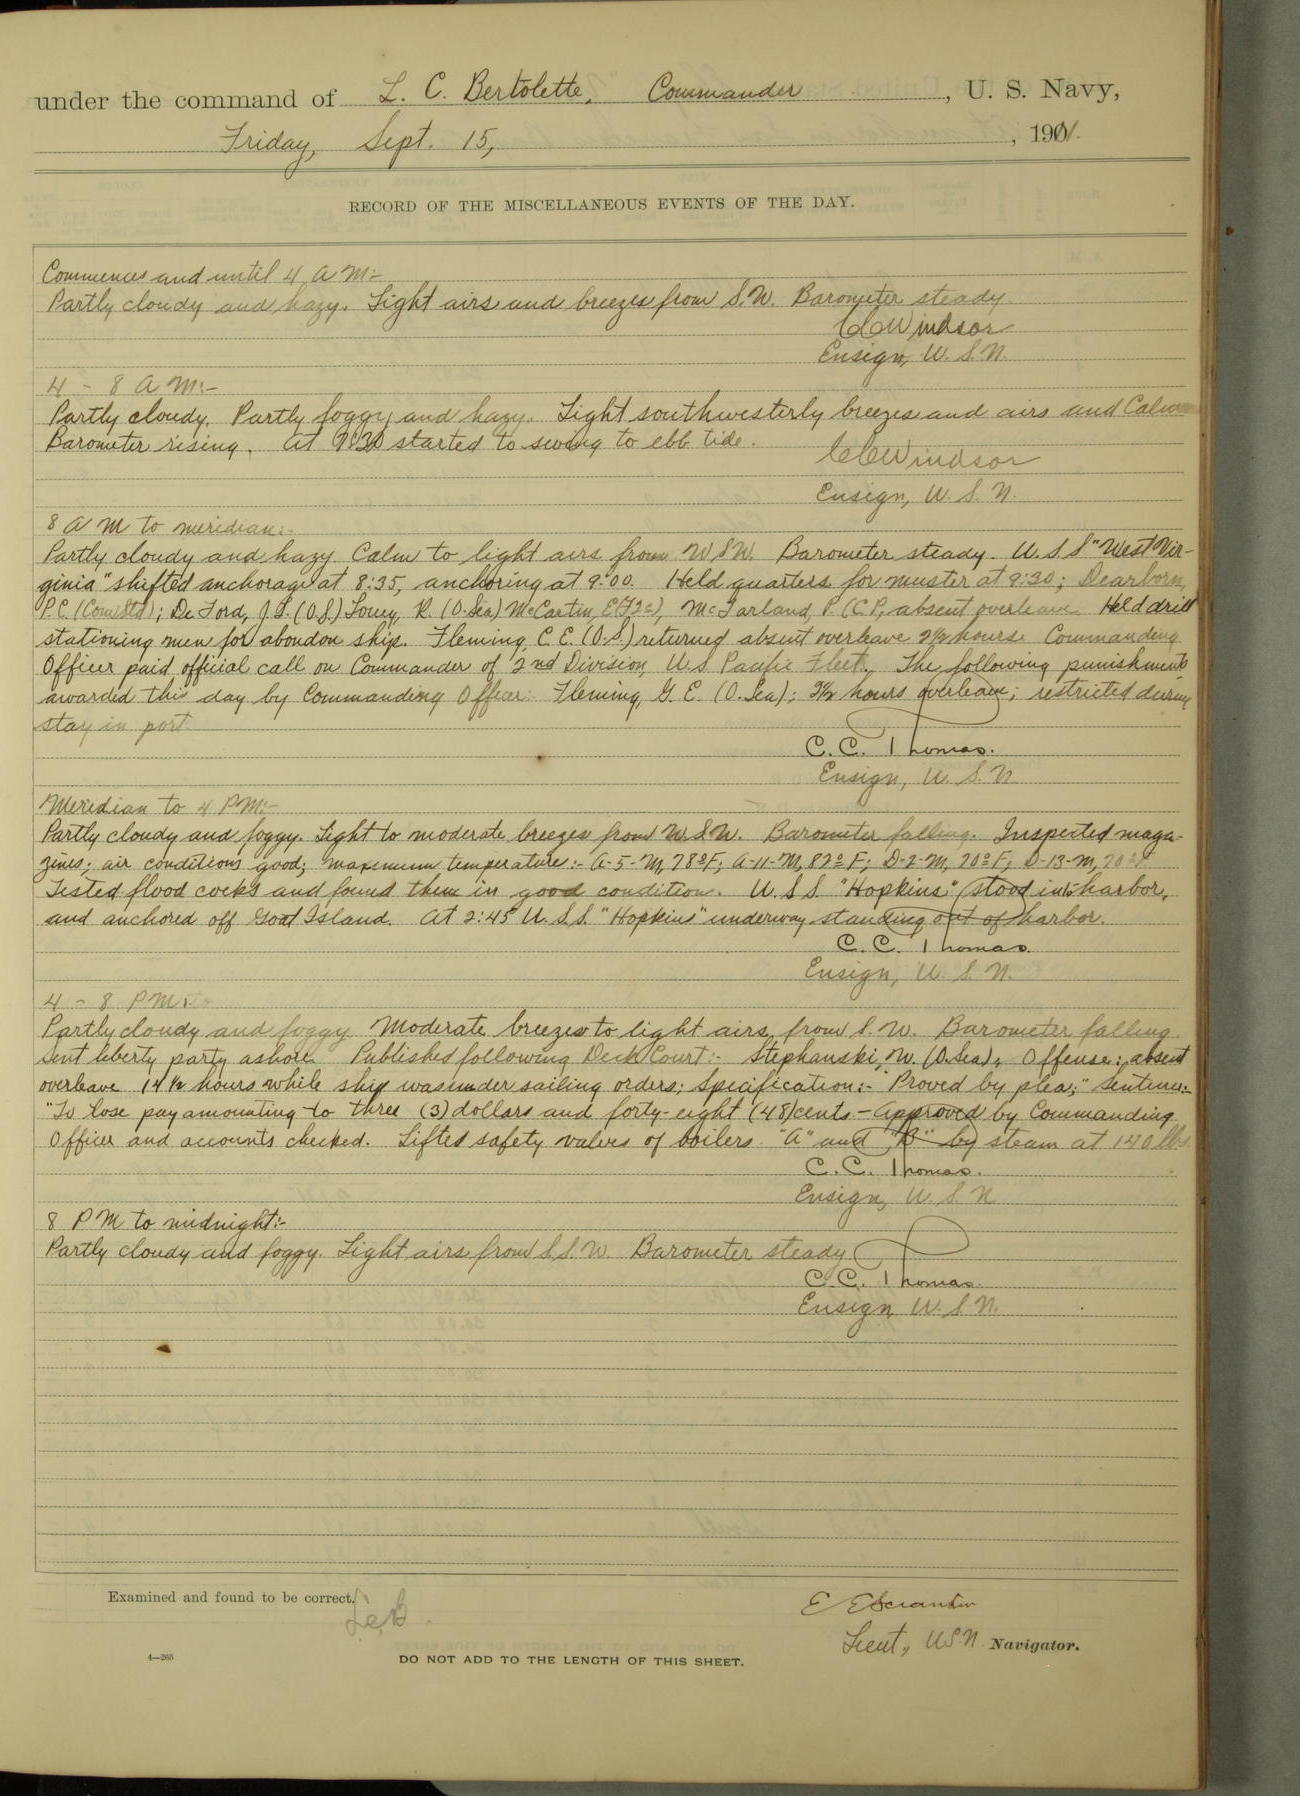 under the command of L. C. Bertolette, Commander, U. S. Navy,
Friday, Sept. 15, , 1911.
RECORD OF THE MISCELLANEOUS EVENTS OF THE DAY.
Commences and until 4 A M:-
Partly cloudy and hazy. Light airs and breezes from S.W. Barometer steady.
C C Windsor
Ensign, U. S. N.
4 - 8 A M:-
Partly cloudy. Partly foggy and hazy. Light southwesterly breezes and airs and Calm
Barometer rising. At started to swing to ebb tide.
C C Windsor
Ensign, U. S. N.
8 A M to meridian:-
Partly cloudy and hazy Calm to light airs from W S W. Barometer steady. U. S. S "West Vir-
ginia" shifted anchorage at 8:35, anchoring at 9:00. Held quarters for muster at 9:30; Dearborn,
P. C. ; De Ford, J. L. (O.S.) R. (O.Sea) McCartin, E. (F2c), McFarland, P. (C.P. absent overleave. Held drill
stationing men for abondon ship. Fleming, C. E. (O.S.) returned absent overleave 2½ hours. Commanding
Officer paid official call on Commander of 2nd Division, U.S. Pacific Fleet. The following punishments
awarded this day by Commanding Officer: Fleming, G. E. (O.Sea); 2½ hours overleave; restricted during
stay in port.
C. C. Thomas.
Ensign, U. S. N
Meridian to 4 P M:-
Partly cloudy and foggy. Light to moderate breezes from W. S. W. Barometer falling. Inspected maga-
zines; air conditions good; maximum temperature:- A-5-M, 78°F; A-11-M, 82° F; D-2-M, 70° F; D-13-M, 70° F.
Tested flood cocks and found them in good condition. U. S. S. "Hopkins" stood into harbor,
and anchored off Goat Island. At 2:45 U. S. S. "Hopkins" underway standing out of harbor.
C. C. Thomas.
Ensign, U. S. N.
4 - 8 P M:-
Partly cloudy and foggy Moderate breezes to light airs, from S. W. Barometer falling.
Sent liberty party ashore. Published following Deck Court:- Stephanski, W. (O.Sea); Offense: absent
overleave 14½ hours while ship was under sailing orders; Specification:- "Proved by plea;" Sentence:-
"To lose pay amounting to three (3) dollars and forty-eight (48) cents - Approved by Commanding
Officer and accounts checked. Lifted safety valves of boilers "A" and "B" by steam at 140 lbs
C. C. Thomas.
Ensign, U. S. N
8 P M to midnight:-
Partly cloudy and foggy. Light airs from S. S. W. Barometer steady
C. C. Thomas.
Ensign U. S. N.
Examined and found to be correct.
L.C.B.
E E Scranton
Lieut., U.S.N. Navigator.
4—265
DO NOT ADD TO THE LENGTH OF THIS SHEET.